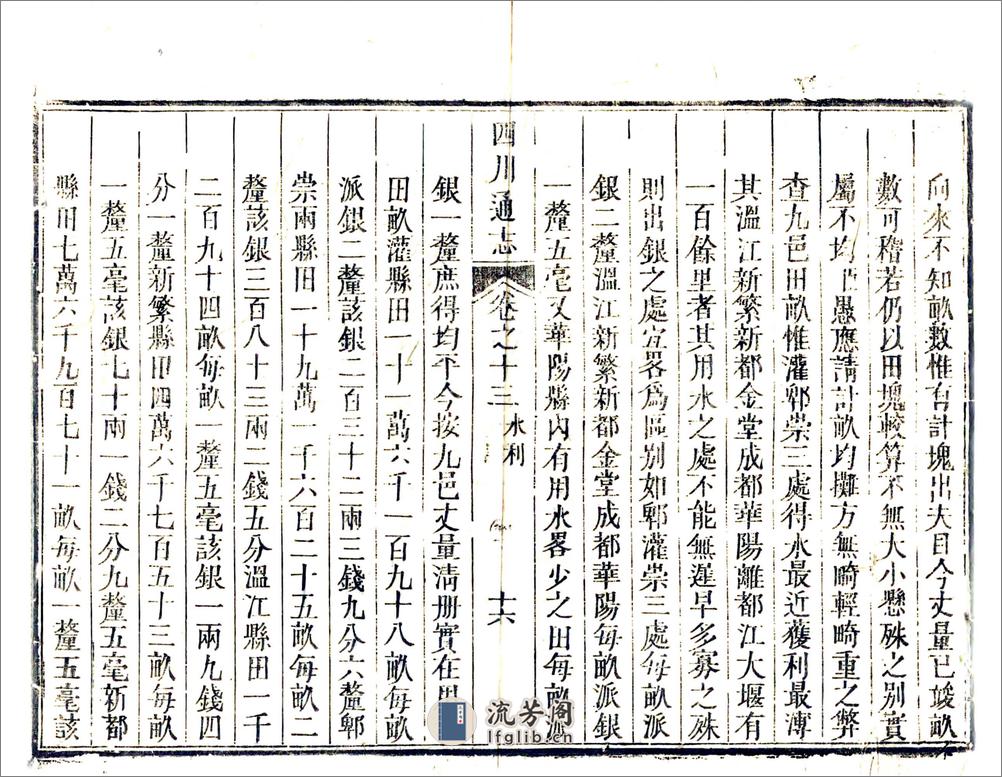 向來不知畝數惟有計塊出夫目今丈量已竣畝
數可稽若仍以田塊較算不無大小懸殊之別實
屬不均卑愚應請計畝均攤方無畸輕畸重之弊
查九邑田畝惟灌郫崇三處得水最近獲利最溥
其溫江新繁新都金堂成都華陽離都江大堰有
一百餘里者其用水之處不能無遲早多寡之殊
則出銀之處宜畧為區別如郫灌崇三處每畝派
銀二釐溫江新繁新都金堂成都華陽每畝派銀
一釐五毫又華陽縣內有用水畧少之田每畝派
四川通志
卷之十三
水利
十六
銀一釐庶得均平今按九邑丈量清册實在用
田畝灌縣田一十一萬六千一百九十八畝每畝
派銀二釐該銀二百三十二兩三錢九分六釐郫
崇兩縣田一十九萬一千六百二十五畝每畝二
釐該銀三百八十三兩二錢五分溫江縣田一千
二百九十四畝每畝一釐五毫該銀一兩九錢四
分一釐新繁縣田四萬六千七百五十三畝每畝
一釐五毫該銀七十兩一錢二分九釐五毫新都
縣田七萬六千九百七十一畝每畝一釐五毫該
流芳阁
lfglib.cn